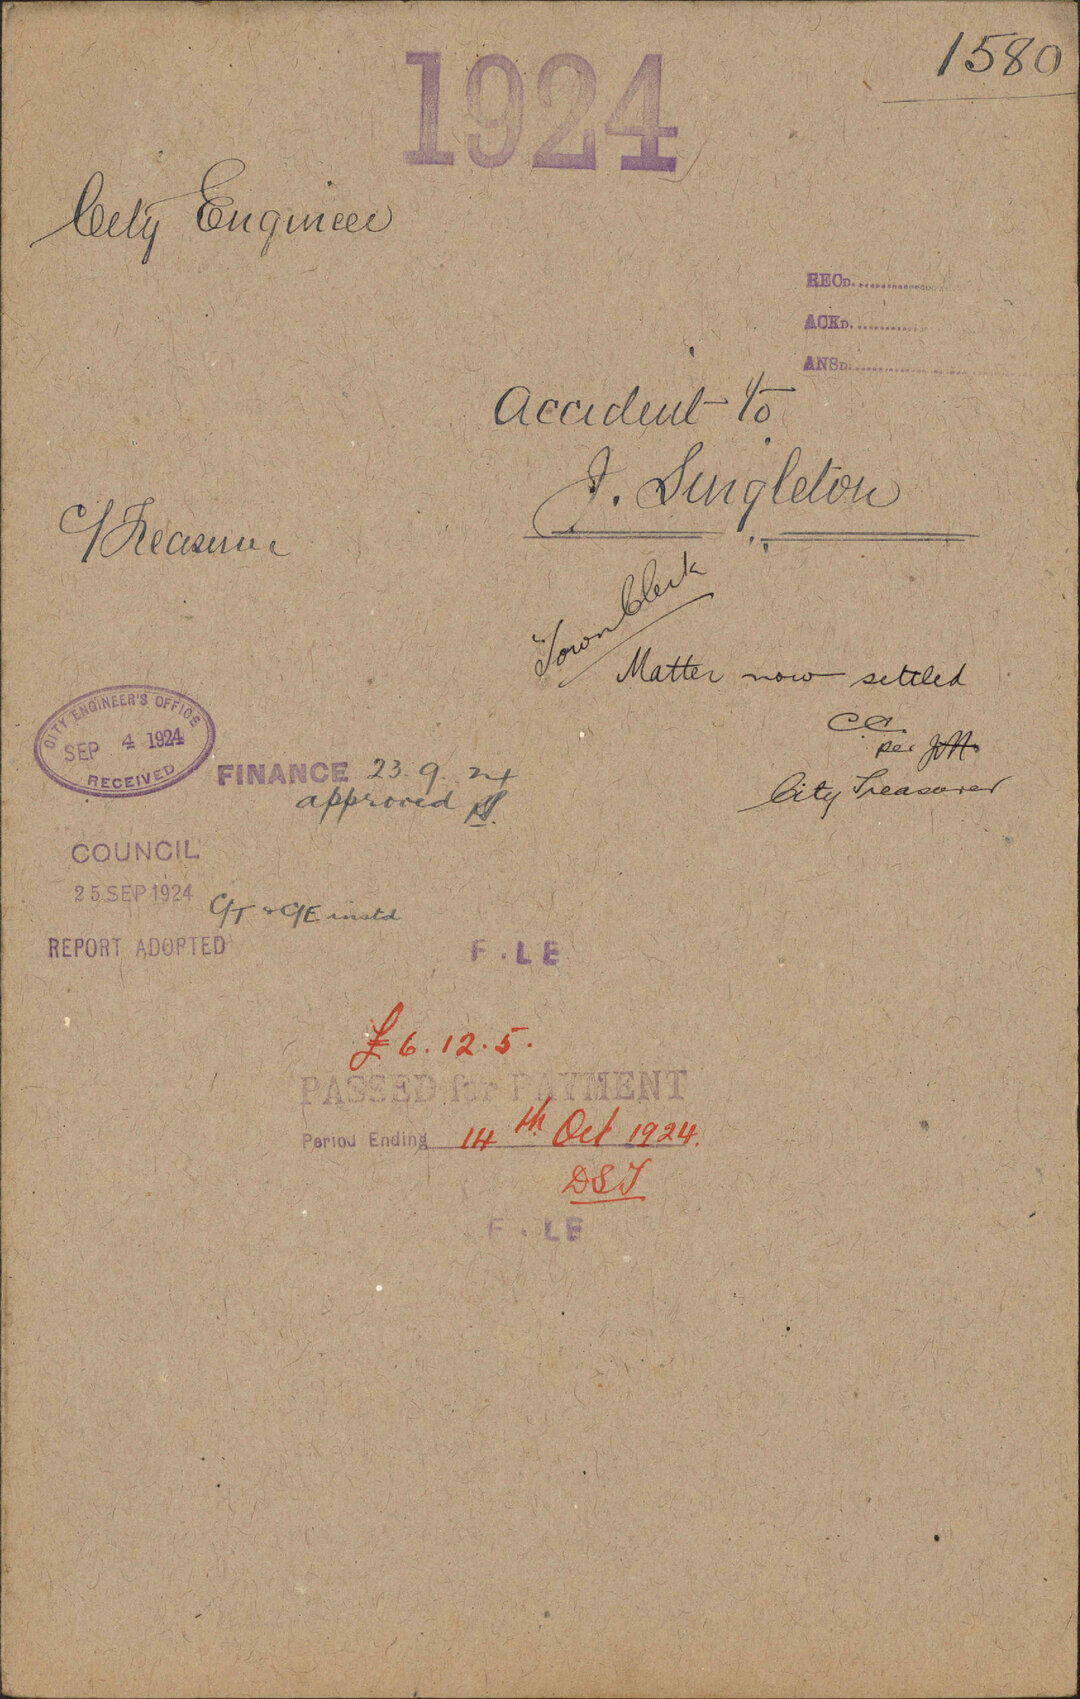 1580
1924
City Engineer
RECD.
ACKD.
ANSD.
Accident to
J. Singleton
C/Treasurer
Town Clerk
Matter now settled
C.C.
per
City Treasurer
CITY ENGINEER'S OFFICE
SEP 4 1924
RECEIVED
FINANCE 23.9.24
approved
COUNCIL
25 SEP 1924
C/T & C/E instd
REPORT ADOPTED
F.LE
£6.12.5.
PASSED for PAYMENT
Period Ending 14th Oct 1924.
DST
F.LE